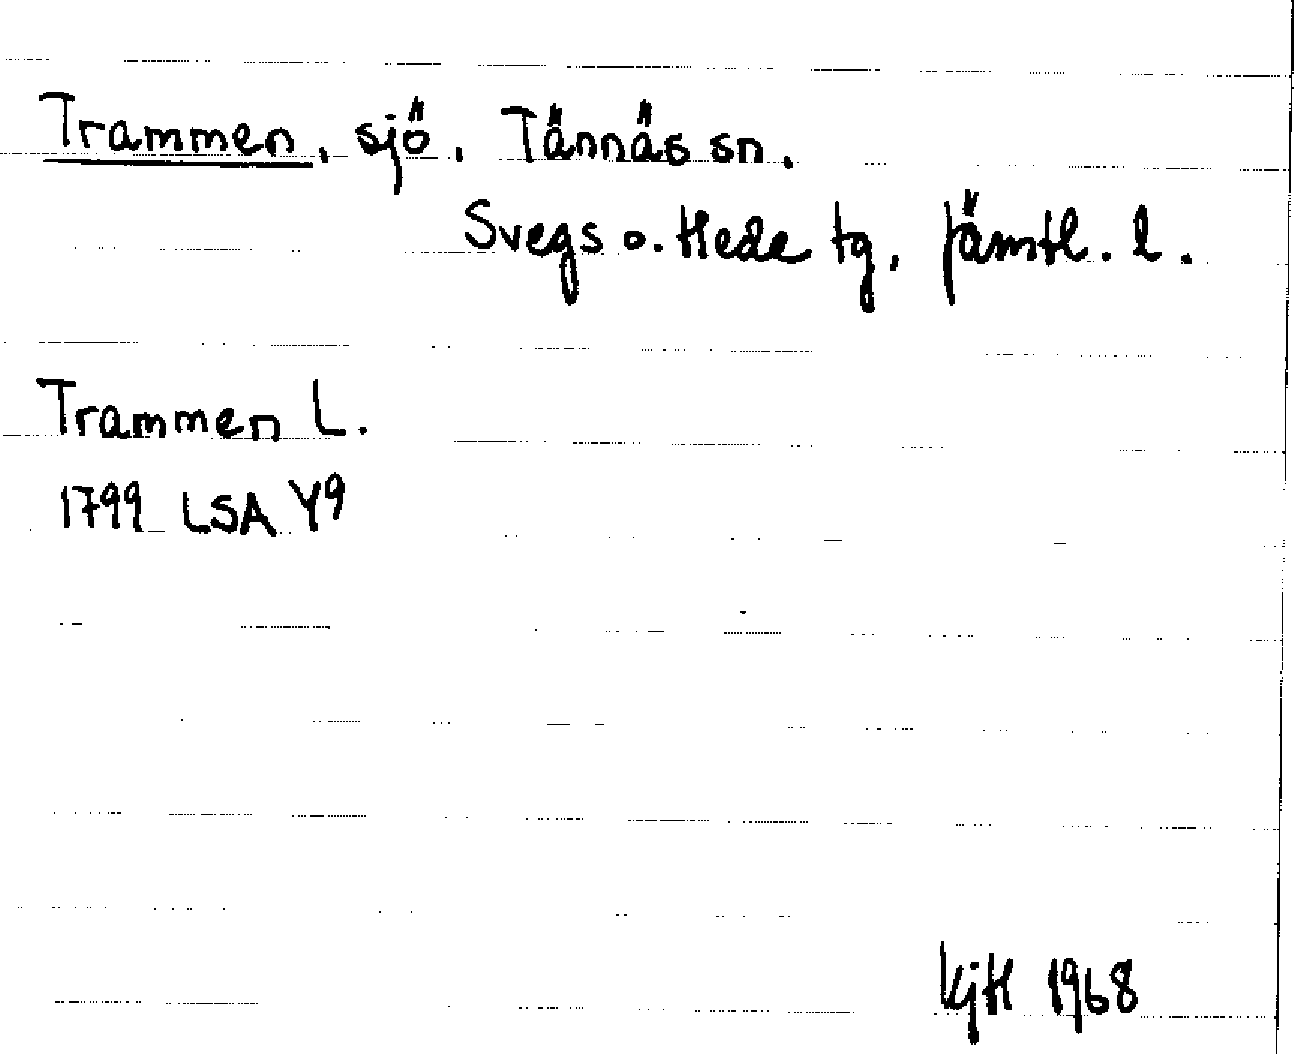 Trammen, sjö, Tännäs sn.
Svegs o. Hede tg, Jämtl. l.
Trammen L.
1799 LSA Y9
KjH 1968